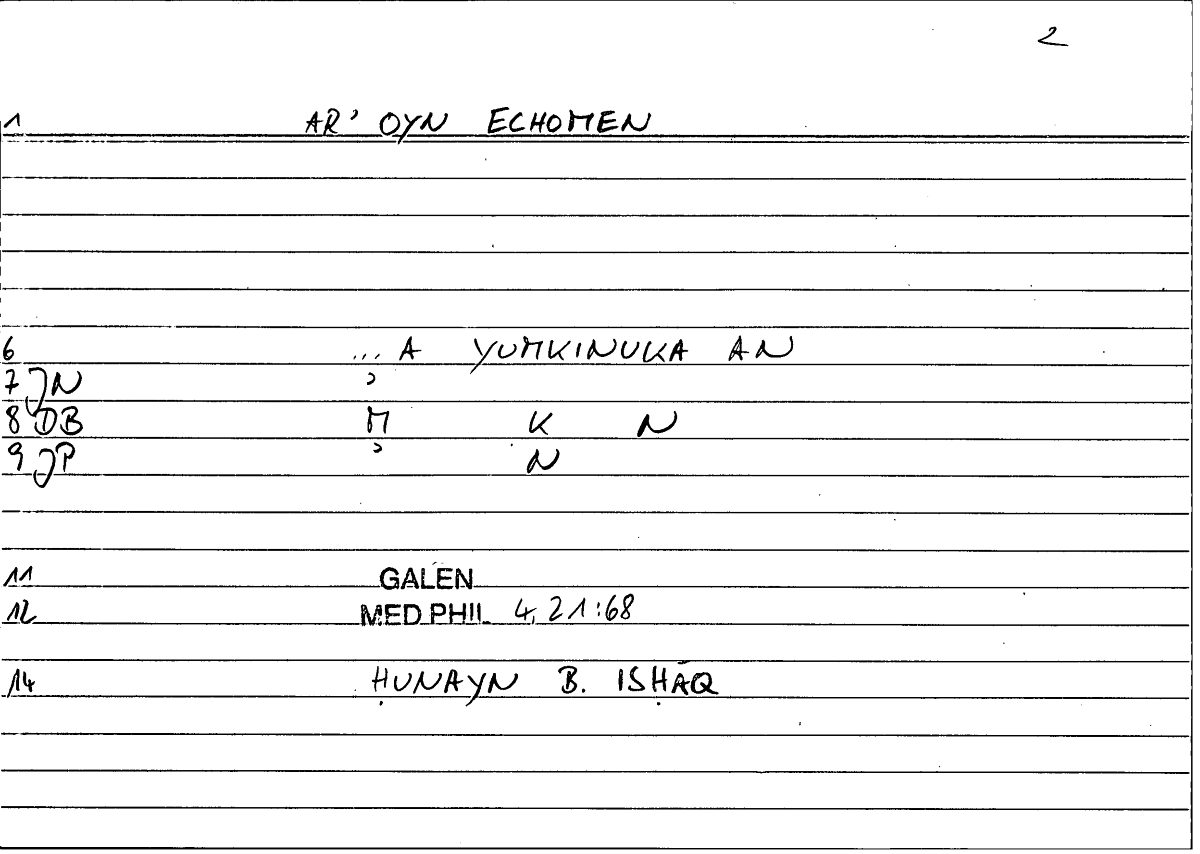 2
1 AR' OYN ECHOMEN
6 ... A YUMKINUKA AN
7 JN ʾ
8 DB M K N
9 JP ʾ N
11 GALEN
12 MED PHIL 4, 21:68
14 ḤUNAYN B. ISḤĀQ